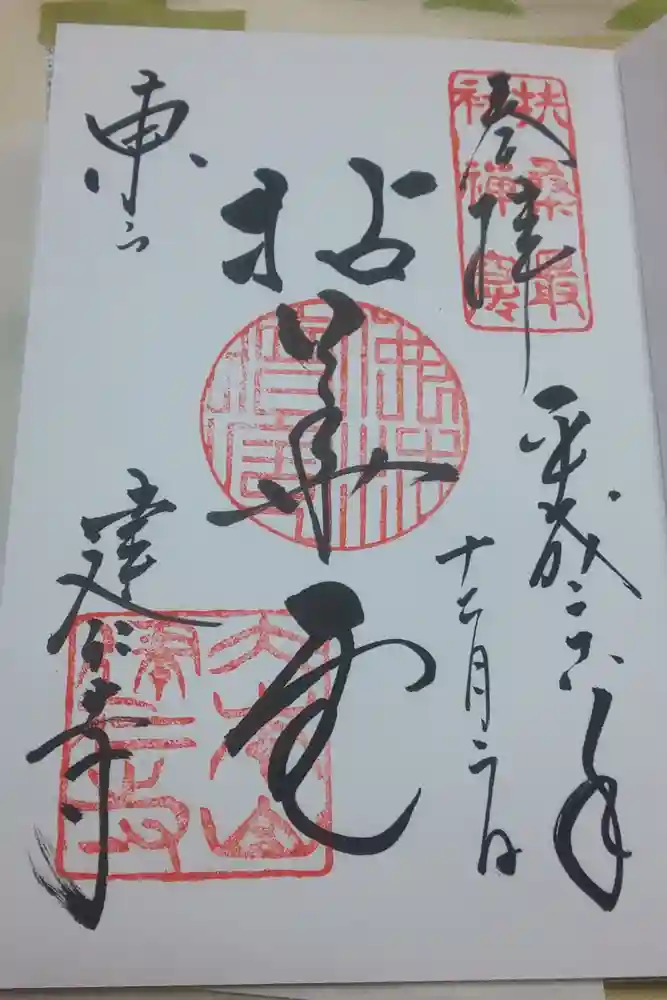 奉拝
扶桑最
初禅窟
平成二六年
十二月二日
拈華堂
東山
建仁寺
大本山
建仁寺